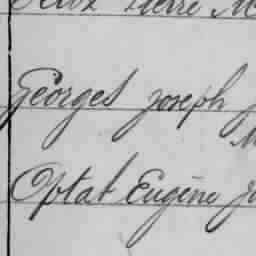 Pierre
Georges Joseph
Optat Eugène